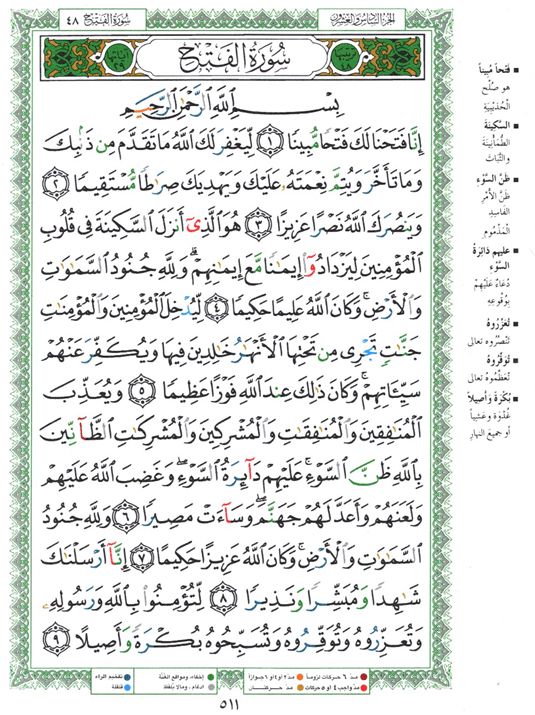 سُورَةُ الفَتْح ٤٨
الجزء السادس والعشرون
سُورَةُ الفَتْحِ
بِسْمِ ٱللَّهِ ٱلرَّحْمَٰنِ ٱلرَّحِيمِ
إِنَّا فَتَحْنَا لَكَ فَتْحًا مُّبِينًا ١ لِّيَغْفِرَ لَكَ ٱللَّهُ مَا تَقَدَّمَ مِن ذَنۢبِكَ
وَمَا تَأَخَّرَ وَيُتِمَّ نِعْمَتَهُۥ عَلَيْكَ وَيَهْدِيَكَ صِرَٰطًا مُّسْتَقِيمًا ٢
وَيَنصُرَكَ ٱللَّهُ نَصْرًا عَزِيزًا ٣ هُوَ ٱلَّذِىٓ أَنزَلَ ٱلسَّكِينَةَ فِى قُلُوبِ
ٱلْمُؤْمِنِينَ لِيَزْدَادُوٓا۟ إِيمَٰنًا مَّعَ إِيمَٰنِهِمْ ۗ وَلِلَّهِ جُنُودُ ٱلسَّمَٰوَٰتِ
وَٱلْأَرْضِ ۚ وَكَانَ ٱللَّهُ عَلِيمًا حَكِيمًا ٤ لِّيُدْخِلَ ٱلْمُؤْمِنِينَ وَٱلْمُؤْمِنَٰتِ
جَنَّٰتٍ تَجْرِى مِن تَحْتِهَا ٱلْأَنْهَٰرُ خَٰلِدِينَ فِيهَا وَيُكَفِّرَ عَنْهُمْ
سَيِّـَٔاتِهِمْ ۚ وَكَانَ ذَٰلِكَ عِندَ ٱللَّهِ فَوْزًا عَظِيمًا ٥ وَيُعَذِّبَ
ٱلْمُنَٰفِقِينَ وَٱلْمُنَٰفِقَٰتِ وَٱلْمُشْرِكِينَ وَٱلْمُشْرِكَٰتِ ٱلظَّآنِّينَ
بِٱللَّهِ ظَنَّ ٱلسَّوْءِ ۚ عَلَيْهِمْ دَآئِرَةُ ٱلسَّوْءِ ۖ وَغَضِبَ ٱللَّهُ عَلَيْهِمْ
وَلَعَنَهُمْ وَأَعَدَّ لَهُمْ جَهَنَّمَ ۖ وَسَآءَتْ مَصِيرًا ٦ وَلِلَّهِ جُنُودُ
ٱلسَّمَٰوَٰتِ وَٱلْأَرْضِ ۚ وَكَانَ ٱللَّهُ عَزِيزًا حَكِيمًا ٧ إِنَّآ أَرْسَلْنَٰكَ
شَٰهِدًا وَمُبَشِّرًا وَنَذِيرًا ٨ لِّتُؤْمِنُوا۟ بِٱللَّهِ وَرَسُولِهِۦ
وَتُعَزِّرُوهُ وَتُوَقِّرُوهُ وَتُسَبِّحُوهُ بُكْرَةً وَأَصِيلًا ٩
■ فَتْحاً مُبِيناً
هو صُلْح
الحُدَيْبِيَة
■ السَّكِينَةَ
الطُّمَأْنِينَةَ
والثَّبَات
■ ظَنَّ السَّوْءِ
ظَنَّ الأَمْرِ
الفَاسِدِ
المَذْمُوم
■ عليهم دَائِرَةُ
السَّوْءِ
دُعَاءٌ عَلَيْهِمْ
بِوُقُوعِهِ
■ تُعَزِّرُوهُ
تَنْصُرُوه تعالى
■ تُوَقِّرُوهُ
تُعَظِّمُوهُ تعالى
■ بُكْرَةً وَأَصِيلاً
غُدْوَةً وعَشِيّاً
أو جميعَ النهار
مدّ ٦ حركات لزوماً مدّ ٢ أو ٤ أو ٦ جوازاً
مدّ واجب ٤ أو ٥ حركات مدّ حركتان
إخفاء، ومواقع الغُنَّة
ادغام، ومالا يُلفَظ
تفخيم الراء
قلقلة
٥١١